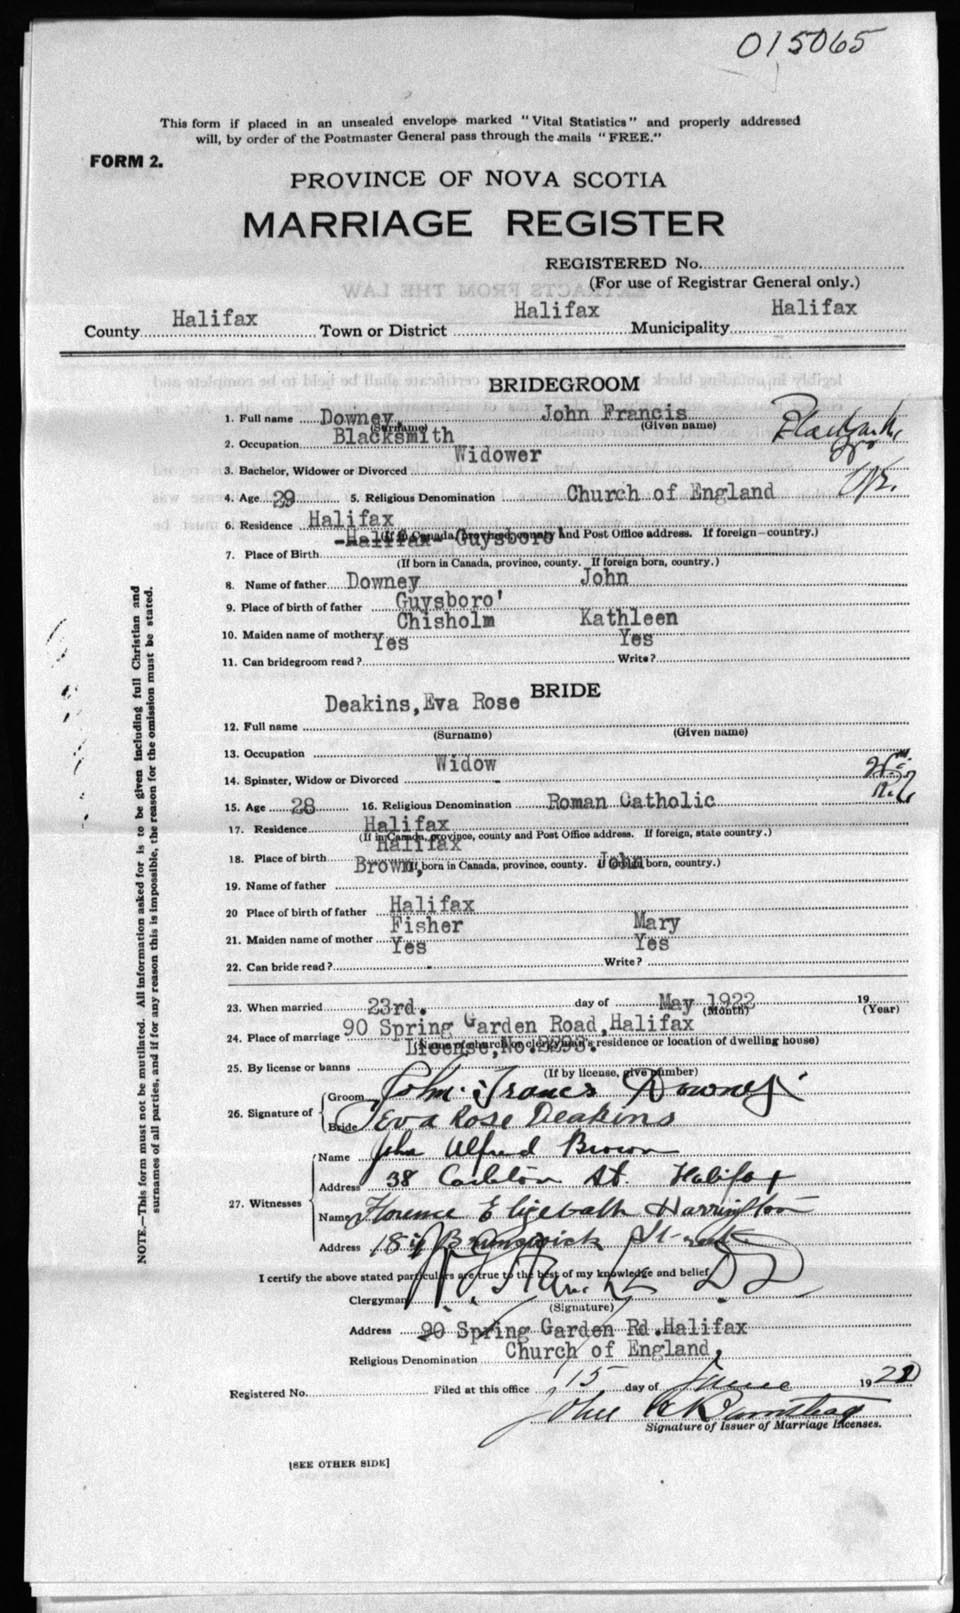 015065
This form if placed in an unsealed envelope marked "Vital Statistics" and properly addressed
will, by order of the Postmaster General pass through the mails "FREE."
FORM 2.
PROVINCE OF NOVA SCOTIA
MARRIAGE REGISTER
REGISTERED No.
(For use of Registrar General only.)
County Halifax Town or District Halifax Municipality Halifax
BRIDEGROOM
1. Full name Downey John Francis
(Surname) (Given name)
2. Occupation Blacksmith
3. Bachelor, Widower or Divorced Widower
4. Age 29 5. Religious Denomination Church of England
6. Residence Halifax
(If in Canada, province, county and Post Office address. If foreign—country.)
7. Place of Birth -Halifax- Guysboro
(If born in Canada, province, county. If foreign born, country.)
8. Name of father Downey John
9. Place of birth of father Guysboro'
10. Maiden name of mother Chisholm Kathleen
11. Can bridegroom read? Yes Write? Yes
BRIDE
12. Full name Deakins, Eva Rose
(Surname) (Given name)
13. Occupation
14. Spinster, Widow or Divorced Widow
15. Age 28 16. Religious Denomination Roman Catholic
17. Residence Halifax
(If in Canada, province, county and Post Office address. If foreign, state country.)
18. Place of birth Halifax
(If born in Canada, province, county. If foreign born, country.)
19. Name of father Brown, John
20 Place of birth of father Halifax
21. Maiden name of mother Fisher Mary
22. Can bride read? Yes Write? Yes
23. When married 23rd. day of May 1922 19
(Month) (Year)
24. Place of marriage 90 Spring Garden Road, Halifax
(Name of church or clergyman's residence or location of dwelling house)
25. By license or banns License, No.
(If by license, give number)
26. Signature of Groom John Francs Downey
Bride Eva Rose Deakins
27. Witnesses Name John Alfred Brown
Address 38 Carleton St. Halifax
Name Florence Elizebath Harrington
Address Brunswick St
I certify the above stated particulars are true to the best of my knowledge and belief
Clergyman
(Signature)
Address 90 Spring Garden Rd. Halifax
Religious Denomination Church of England,
Registered No. Filed at this office 15 day of June 1922
John
Signature of Issuer of Marriage Licenses.
[SEE OTHER SIDE]
NOTE.—This form must not be mutilated. All information asked for is to be given including full Christian and
surnames of all parties, and if for any reason this is impossible, the reason for the omission must be stated.